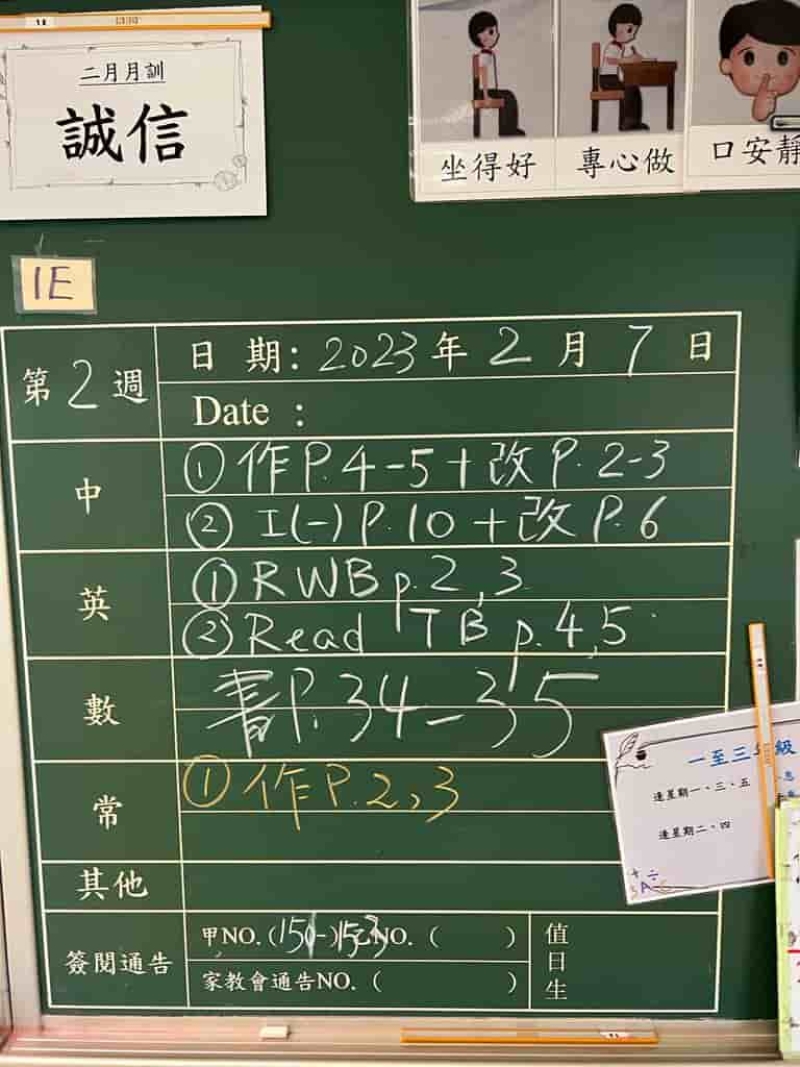 二月月訓
誠信
坐得好
專心做
口安靜
1E
第2週
日期：2023年2月7日
Date :
中
①作P.4-5+改P.2-3
②I(一)P.10+改P.6
英
①RWB p.2,3
②Read TB p.4,5
數
書P.34-35
常
①作P.2,3
其他
簽閱通告
甲NO.(150-)
NO. ( )
家教會通告NO. ( )
值日生
一至三
級
逢星期一、三、五
逢星期二、四